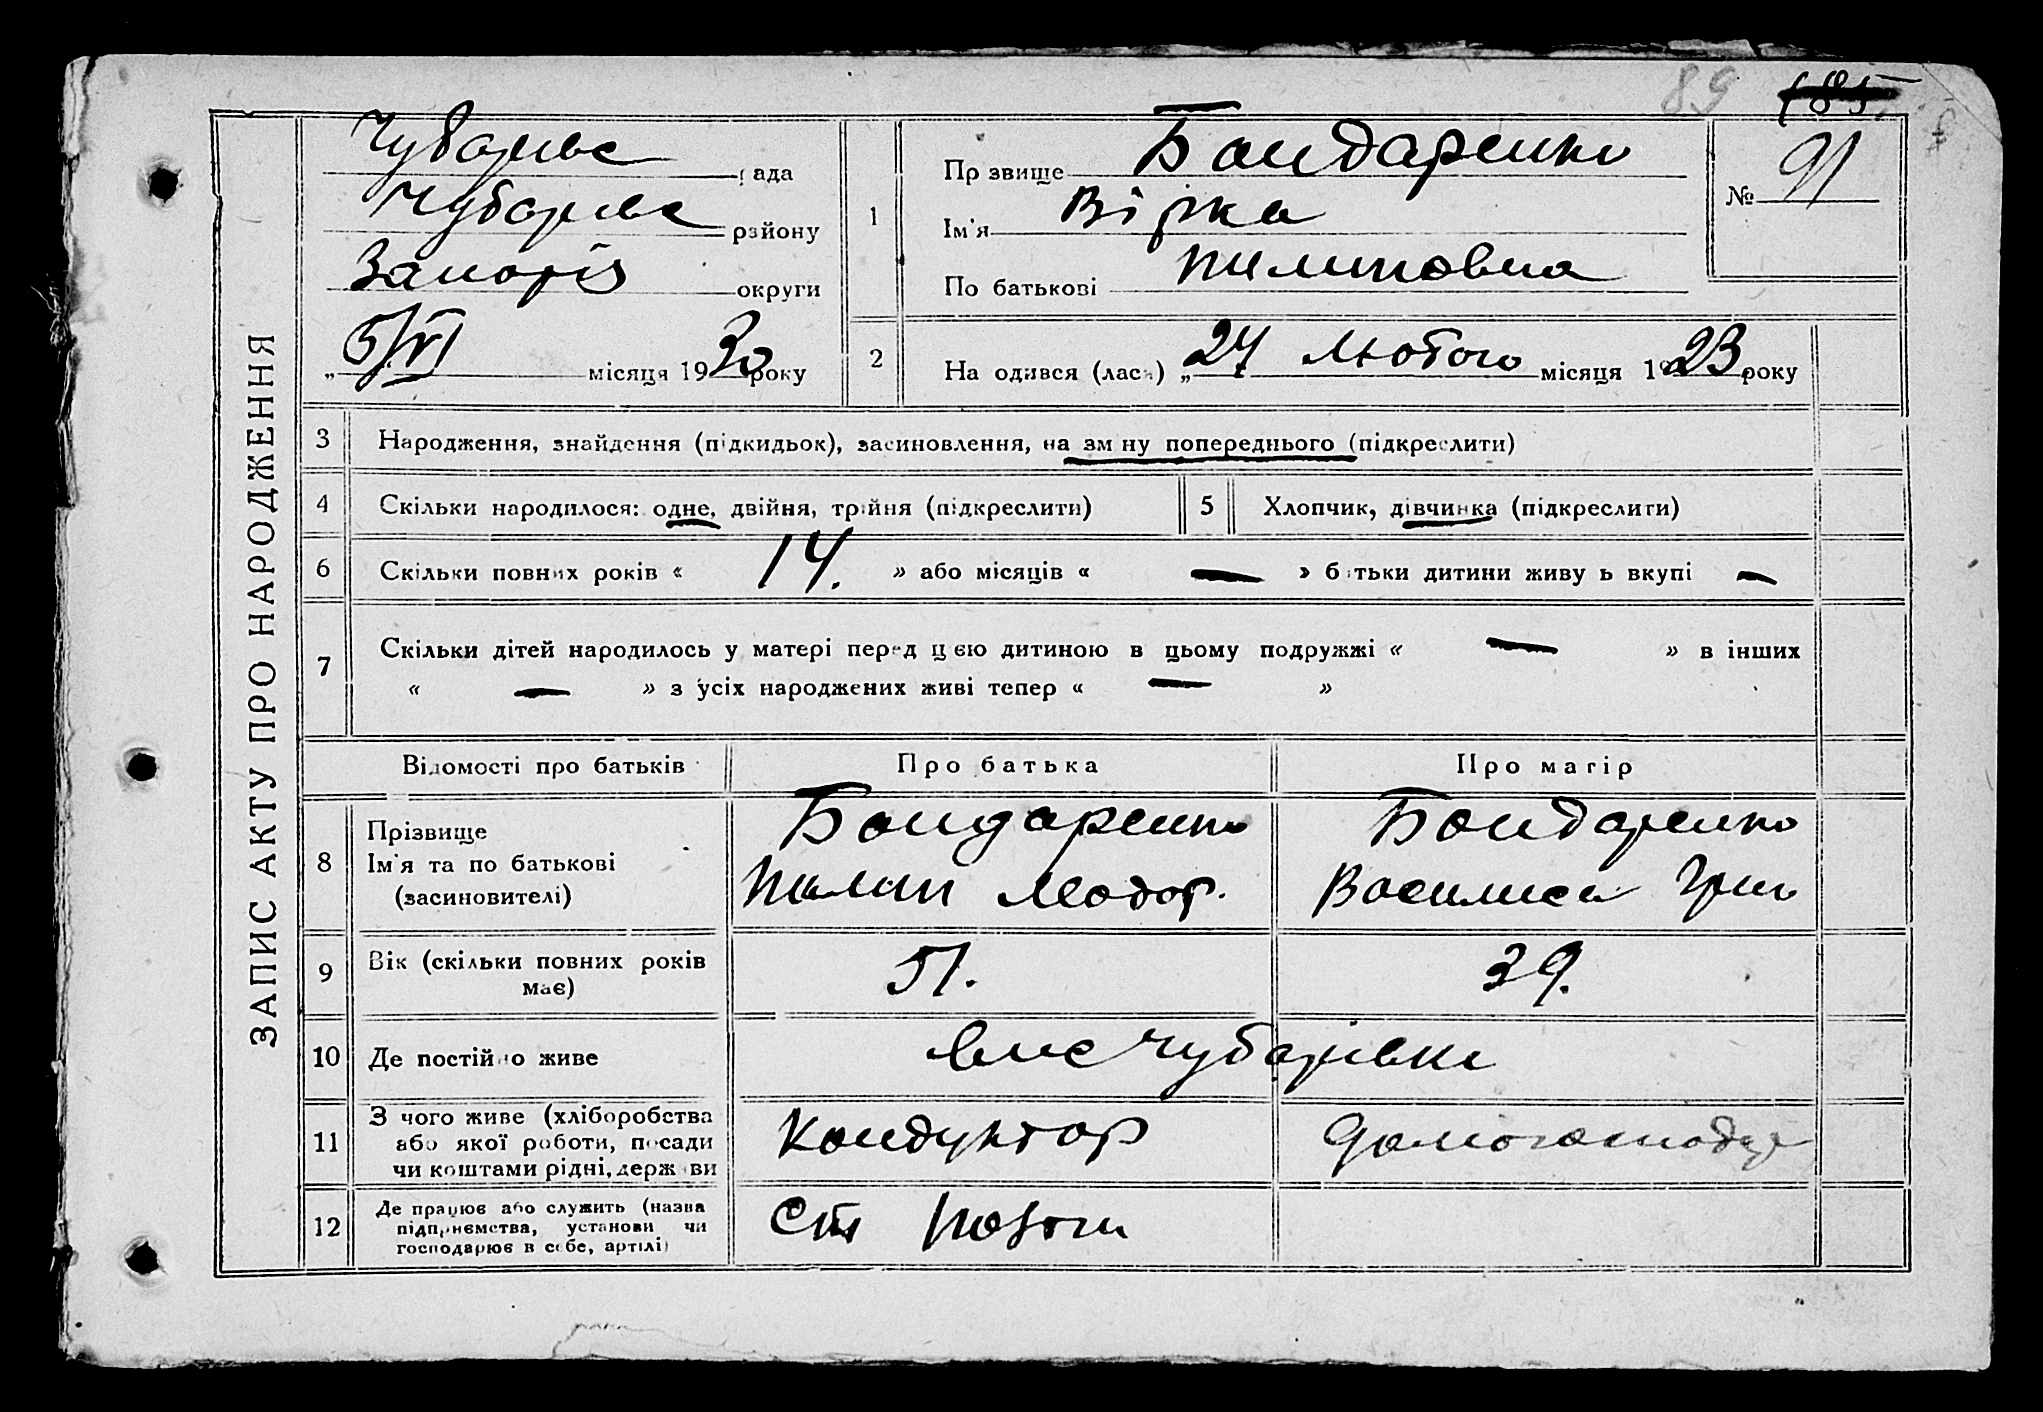 89 185
ЗАПИС АКТУ ПРО НАРОДЖЕННЯ
Чубарівс рада
Чубарівс району
Запоріз округи
„ 5/VI місяця 1930 року
1
Прзвище Бондаренко
Ім'я Вірка
По батькові Пилиповна
№ 91
2
На одився (лася) „ 24 Лютого місяця 1923 року
3 Народження, знайдення (підкидьок), засиновлення, на зм ну попереднього (підкреслити)
4 Скільки народилося: одне, двійня, трійня (підкреслити)
5 Хлопчик, дівчинка (підкреслити)
6 Скільки повних років « 14. » або місяців « — » батьки дитини живу ь вкупі —
7 Скільки дітей народилось у матері перед цією дитиною в цьому подружжі « — » в інших
« — » з усіх народжених живі тепер « — »
Відомості про батьків Про батька Про матір
8 Прізвище
Ім'я та по батькові
(засиновителі)
Бондаренко
Пилип
Бондаренко
Василиса Григ
9 Вік (скільки повних років
має)
51. 39.
10 Де постійно живе
Чубарівки
11 З чого живе (хліборобства
або якої роботи, посади
чи коштами рідні, держ ви
Кондуктор
Домогосподар
12 Де працює або служить (назва
підприємства, установи чи
господарює в себе, артілі)
Ст Пологи